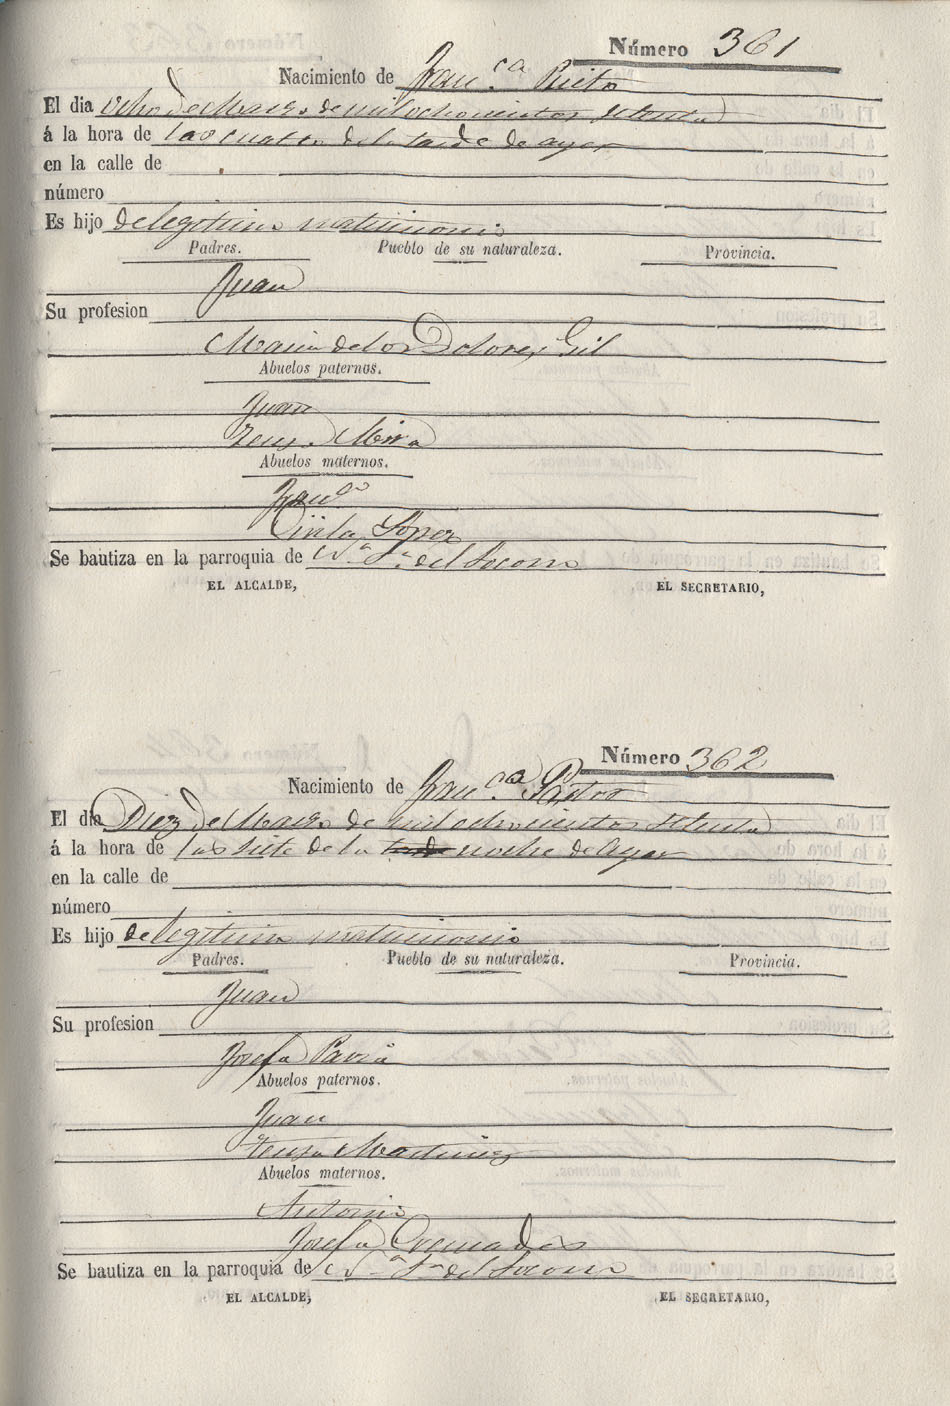 Número 361
Nacimiento de Fran.ca Prieto
El dia ocho de Marzo de mil ochocientos setenta
á la hora de las cuatro de la tarde de ayer
en la calle de
número
Es hijo de legitimo matrimonio
Padres. Pueblo de su naturaleza. Provincia.
Juan
Su profesion
Maria de los Dolores Gil
Abuelos paternos.
Juan
Teresa Mira
Abuelos maternos.
Fran.co
Lopez
Se bautiza en la parroquia de N.a S.a del Socorro
EL ALCALDE, EL SECRETARIO,
Número 362
Nacimiento de Fran.ca Pastor
El dia Diez de Marzo de mil ochocientos setenta
á la hora de las siete de la tarde noche de ayer
en la calle de
número
Es hijo de legitimo matrimonio
Padres. Pueblo de su naturaleza. Provincia.
Juan
Su profesion
Josefa
Abuelos paternos.
Juan
Teresa Martinez
Abuelos maternos.
Antonio
Josefa Cremades
Se bautiza en la parroquia de N.a S.a del Socorro
EL ALCALDE, EL SECRETARIO,